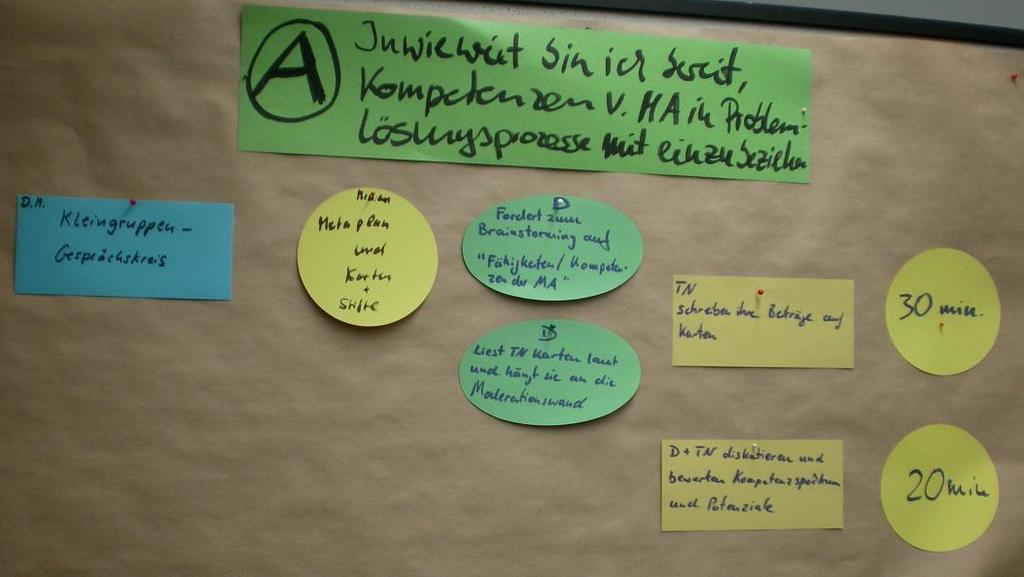 A
Inwieweit bin ich bereit,
Kompetenzen v. MA in Problem-
lösungsprozesse mit einzubeziehen
D.M.
Kleingruppen -
Gesprächskreis
Metaplan
und
Karten
+
Stifte
D
Fordert zum
Brainstorming auf
"Fähigkeiten/Kompeten-
zen der MA"
D
Liest TN Karten laut
und hängt sie an die
Moderationswand
TN
schreiben ihre Beträge auf
Karten
30 min.
D + TN diskutieren und
bewerten Kompetenzspektrum
und Potenziale
20 min